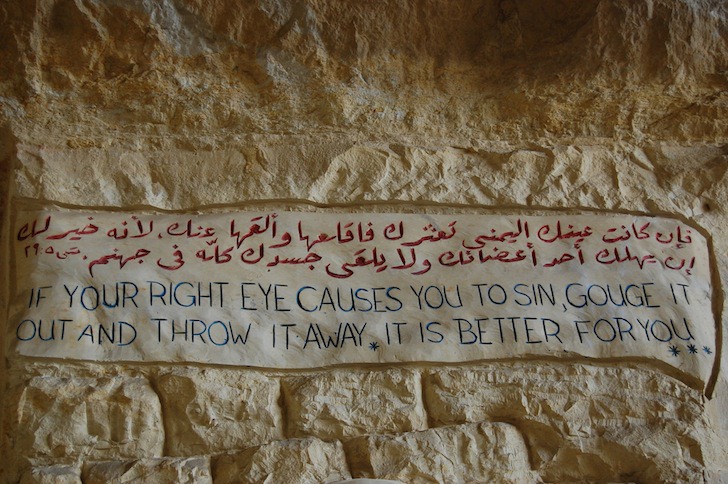 فإن كانت عينك اليمنى تعثرك فاقلعها وألقها عنك، لأنه خير لك
إن يهلك أحد أعضائك ولا يلقى جسدك كلّه فى جهنم. متى ٥: ٢٩
IF YOUR RIGHT EYE CAUSES YOU TO SIN, GOUGE IT
OUT AND THROW IT AWAY * IT IS BETTER FOR YOU ***